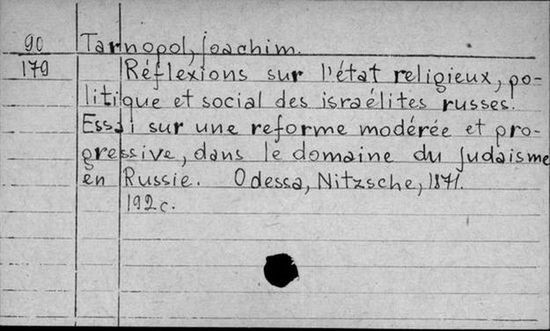 90 Tarnopol, joachim.
179 Réflexions sur l'état religieux, po-
litique et social des israélites russes.
Essai sur une reforme modérée et pro-
gressive, dans le domaine du judaisme
en Russie. Odessa, Nitzsche, 1871.
192 c.